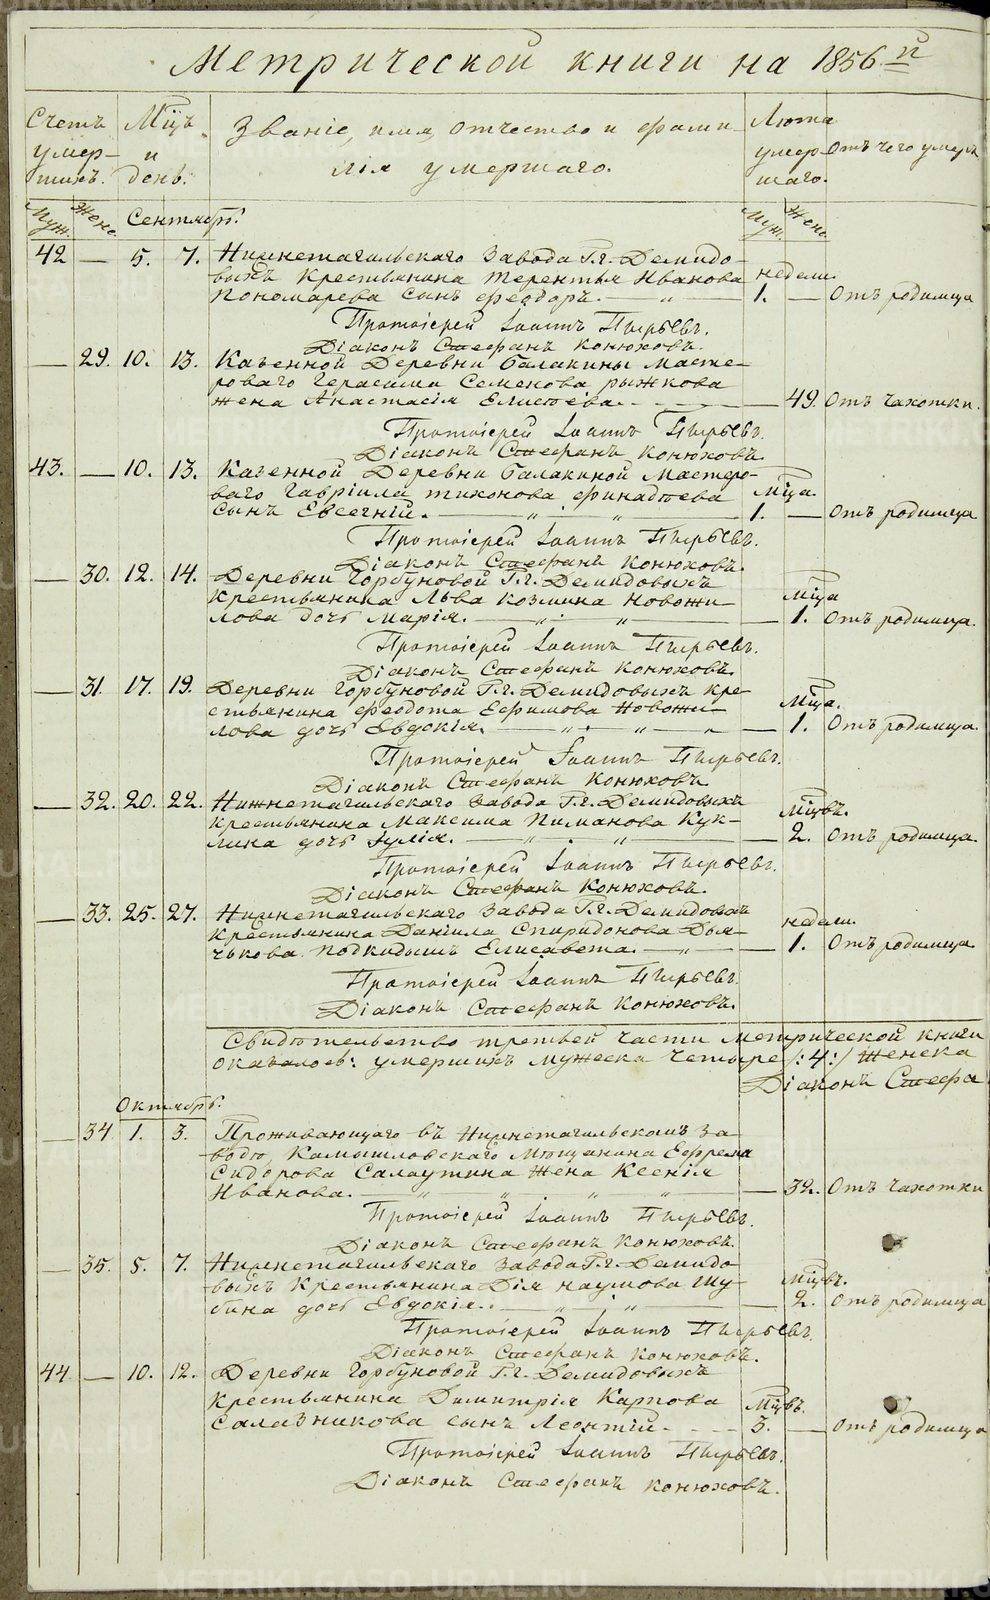 Метрической книги на 1856й
Счетъ умер- шихъ.
Мцъ и день.
Званіе, имя, отчество и фами-
лія умершаго.
Лѣта умер- шаго.
Отъ чего умеръ
Муж. Жен. Сентябрь. Муж. Жен.
42 — 5. 7. Нижнетагильскаго Завода Г.г. Демидо-
выхъ Крестьянина Терентья Иванова недели.
Пономарева сынъ Феодоръ. — 1. — Отъ родимца
Протоіерей Іоаннъ Пырьевъ.
Діаконъ Стефанъ Конюховъ.
— 29. 10. 13. Казенной Деревни Балакины Масте-
роваго Герасима Семенова рыжкова
жена Анастасія Елисѣева. — 49. Отъ чахотки.
Протоіерей Іоаннъ Пырьевъ.
Діаконъ Стефанъ Конюховъ.
43. — 10. 13. Казенной Деревни Балакиной Мастеро-
ваго Гавріила тихонова финадѣева мца.
сынъ Евсегній. — 1. — Отъ родимца
Протоіерей Іоаннъ Пырьевъ.
Діаконъ Стефанъ Конюховъ.
— 30. 12. 14. Деревни Горбуновой Г.г. Демидовыхъ
Крестьянина Льва козмина Новожи- мца
лова дочь Марія. — 1. Отъ родимца.
Протоіерей Іоаннъ Пырьевъ.
Діаконъ Стефанъ Конюховъ.
— 31. 17. 19. Деревни Горбуновой Г.г. Демидовыхъ Кре-
стьянина Феодота Ефимова Новожи- мца.
лова дочь Евдокія. — 1. Отъ родимца.
Протоіерей Іоаннъ Пырьевъ.
Діаконъ Стефанъ Конюховъ
— 32. 20. 22. Нижнетагильскаго Завода Г.г. Демидовыхъ
Крестьянина Максима Пиманова Кук- мцвъ.
лина дочь Іулія. — 2. Отъ родимца.
Протоіерей Іоаннъ Пырьевъ.
Діаконъ Стефанъ Конюховъ.
— 33. 25. 27. Нижнетагильскаго Завода Г.г. Демидовыхъ
Крестьянина Даніила Спиридонова Дья- недели.
чькова подкидышъ Елисавета. — 1. Отъ родимца
Протоіерей Іоаннъ Пырьевъ.
Діаконъ Стефанъ Конюховъ.
Свидѣтельство третьей части метрической книги
оказалось: умершихъ мужеска четыре /:4:/ Женска
Діаконъ Стефа
Октябрь.
— 34 1. 3. Проживающаго въ Нижнетагильскомъ за-
водѣ, Камышловскаго Мѣщанина Ефрема
Сидорова Салаутина жена Ксенія
Иванова. — 32. Отъ чахотки
Протоіерей Іоаннъ Пырьевъ.
Діаконъ Стефанъ Конюховъ.
— 35. 5. 7. Нижнетагильскаго Завода Г.г. Демидо-
выхъ Крестьянина Дія наумова Шу- мцвъ.
бина дочь Евдокія. — 2. Отъ родимца
Протоіерей Іоаннъ Пырьевъ.
Діаконъ Стефанъ Конюховъ.
44. — 10. 12. Деревни Горбуновой Г.г. Демидовыхъ
Крестьянина Димитрія Карпова мцвъ.
Салазникова сынъ Леонтій. 3. — Отъ родимца
Протоіерей Іоаннъ Пырьевъ.
Діаконъ Стефанъ Конюховъ.
METRIKI.GASO-URAL.RU